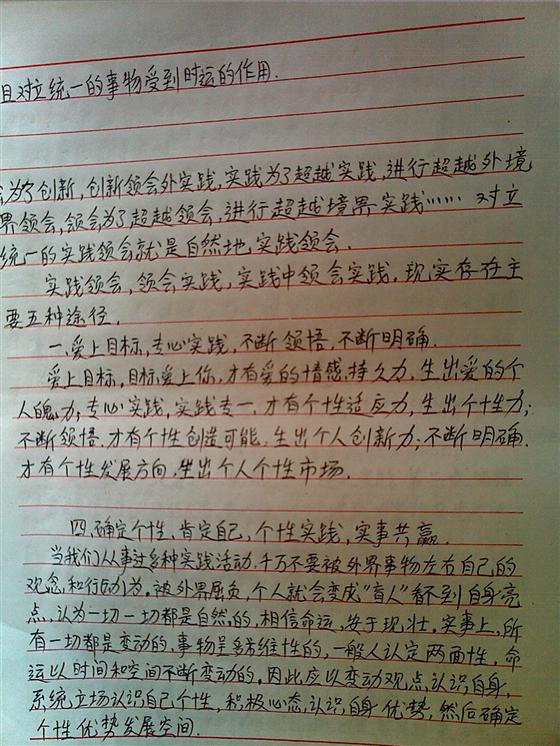 且对立统一的事物受到时运的作用.
会为了创新,创新领会外实践,实践为了超越实践,进行超越外境
界领会,领会为了超越领会,进行超越境界实践……对立
统一的实践领会就是自然地实践领会.
实践领会,领会实践,实践中领会实践,现实存在主
要五种途径,
一.爱上目标,专心实践,不断领悟,不断明确.
爱上目标,目标爱上你,才有爱的情感,持久力,生出爱的个
人魄力;专心实践,实践专一,才有个性适应力,生出个性力;
不断领悟,才有个性创造可能,生出个人创新力;不断明确.
才有个性发展方向.生出个人个性市场.
四.确定个性、肯定自己,个性实践,实事共赢.
当我们从事过多种实践活动,千万不要被外界事物左右自己的
观念和行动力为。被外界屈负,个人就会变成“盲人”看不到自身亮
点,认为一切一切都是自然的,相信命运,安于现壮.实事上,所
有一切都是变动的,事物呈多维性的,一般人认定两面性,命
运以时间和空间不断变动的。因此应以变动观点,认识自身,
系统立场认识自己个性,积极心态,认识自身优势,然后确定
个性优势发展空间.